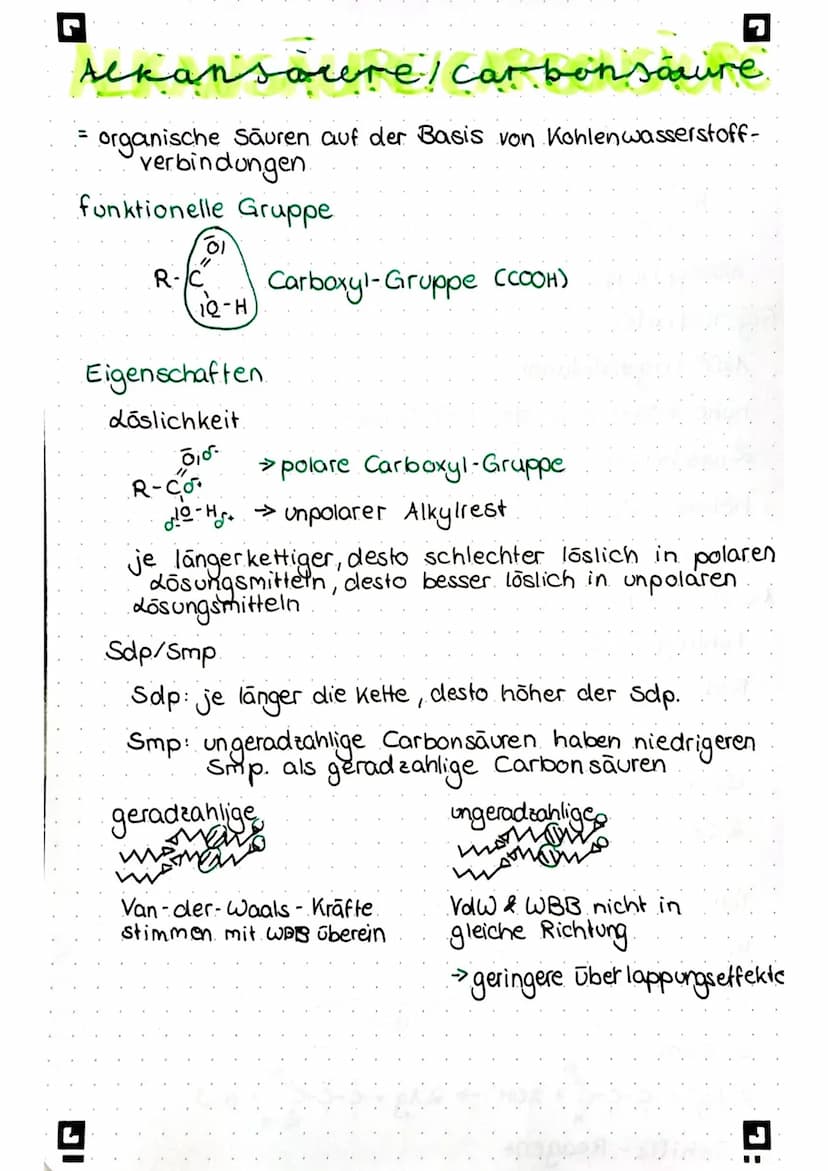 Alkansäure/Carbonsäure
= organische Säuren auf der Basis von Kohlenwasserstoff-
verbindungen
funktionelle Gruppe
O
R-C Carboxyl-Gruppe (COOH)
O-H
Eigenschaften
Löslichkeit
O δ-
→ polare Carboxyl-Gruppe
R-C δ+
δ- O-H δ+ → unpolarer Alkylrest
je längerkettiger, desto schlechter löslich in polaren
Lösungsmitteln, desto besser löslich in unpolaren
Lösungsmitteln
Sdp/Smp
Sdp: je länger die Kette, desto höher der Sdp.
Smp: ungeradzahlige Carbonsäuren haben niedrigeren
Smp. als geradzahlige Carbonsäuren
geradzahlige
ungeradzahlige
Van-der-Waals-Kräfte
stimmen mit WBB überein
VdW & WBB nicht in
gleiche Richtung
→ geringere Überlappungseffekte